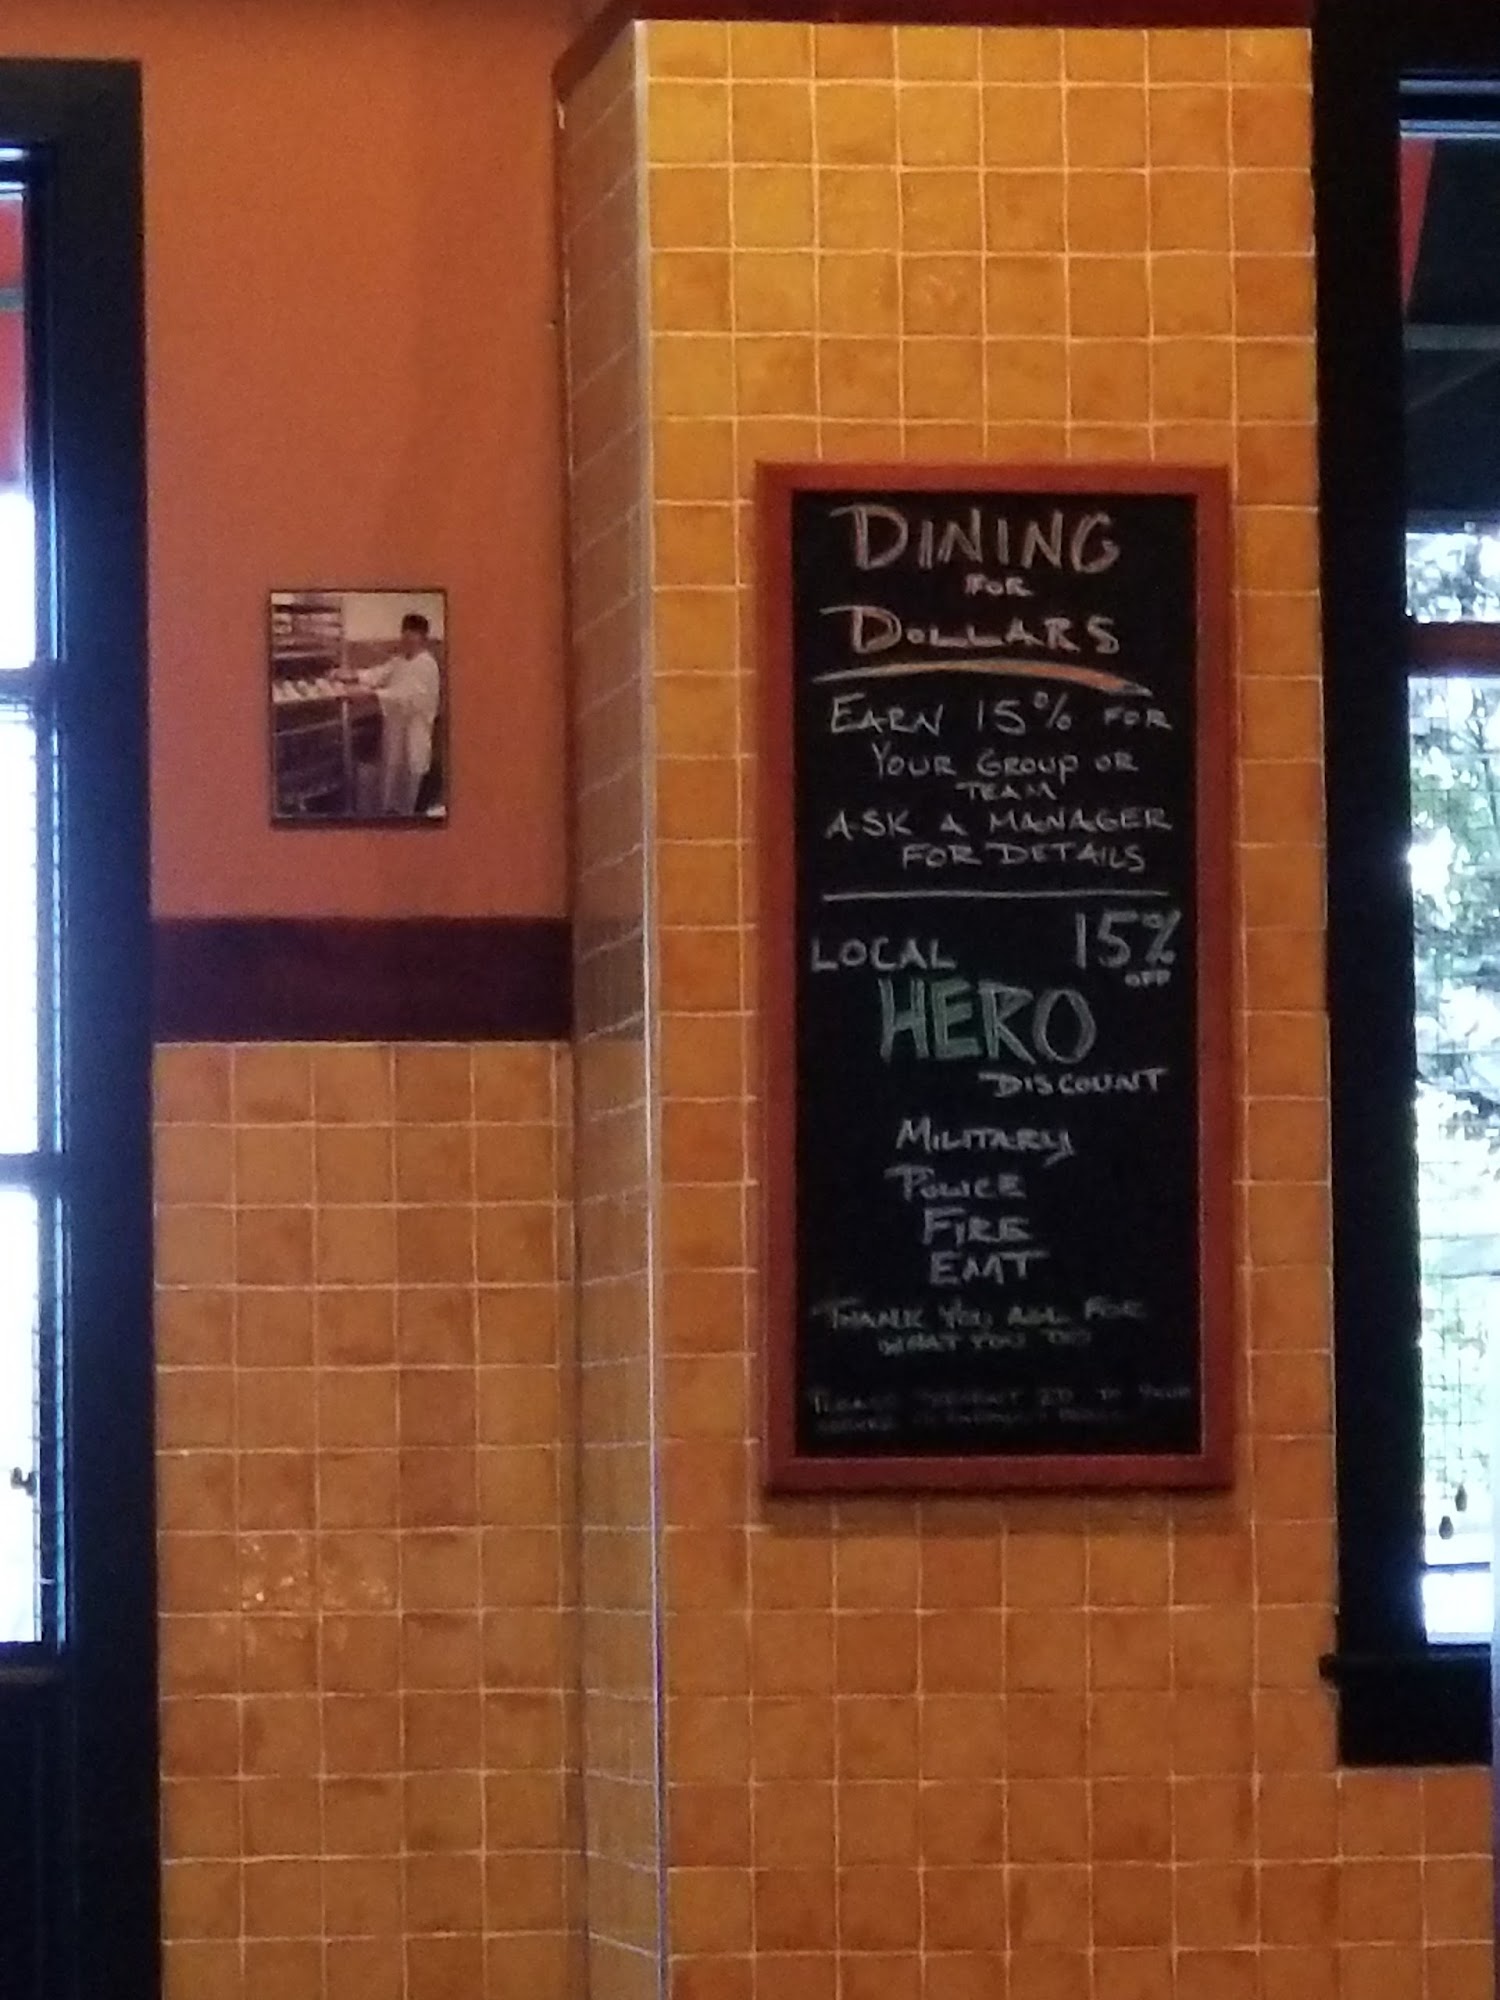 DINING
FOR
DOLLARS
EARN 15% FOR
YOUR GROUP OR
TEAM
ASK A MANAGER
FOR DETAILS
LOCAL 15%
OFF
HERO
DISCOUNT
MILITARY
POLICE
FIRE
EMT
THANK YOU ALL FOR
WHAT YOU DO
PLEASE PRESENT ID TO YOUR